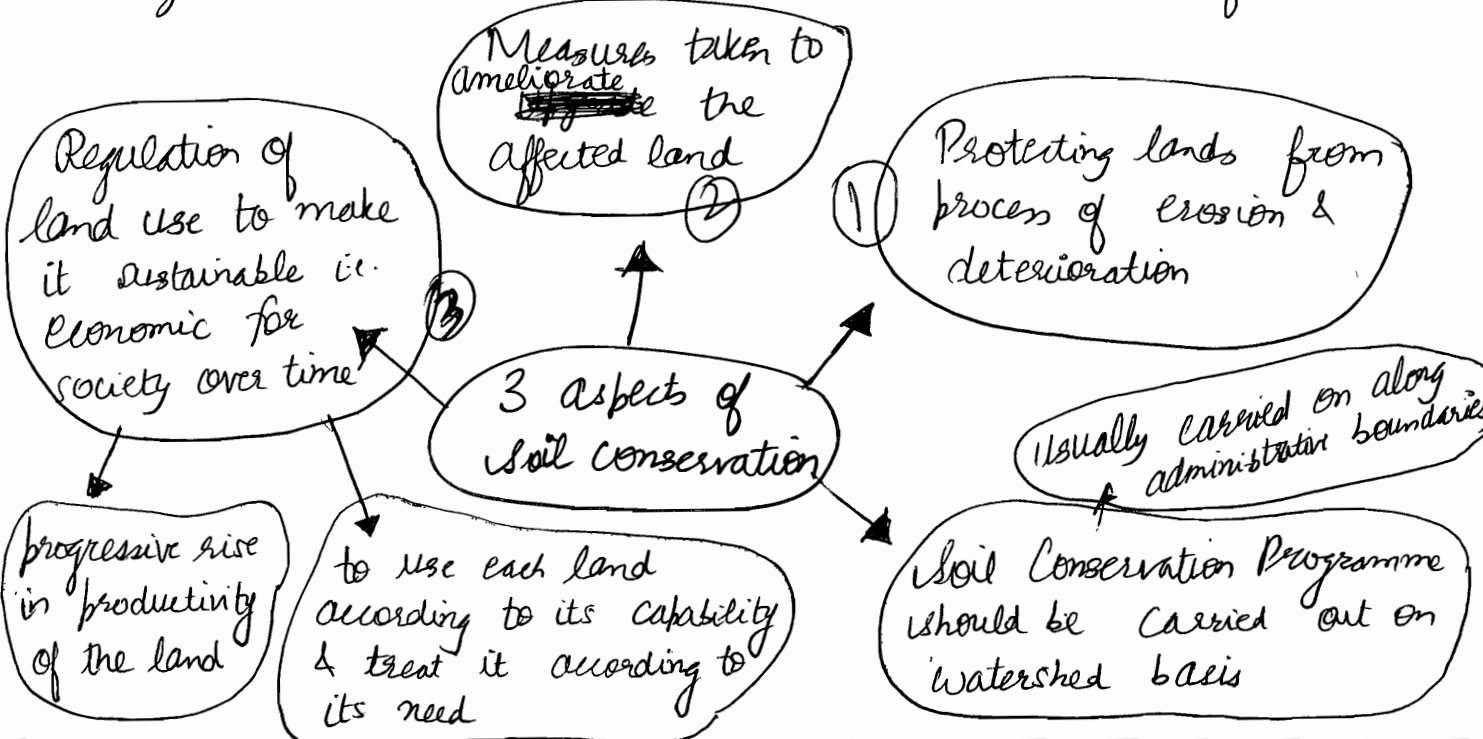 Measures taken to
ameliorate
the
affected land
2
Regulation of
land use to make
it sustainable i.e.
economic for
society over time
3
1
Protecting lands from
process of erosion &
deterioration
3 aspects of
soil conservation
Usually carried on along
administrative boundaries
progressive rise
in productivity
of the land
to use each land
according to its capability
& treat it according to
its need
Soil Conservation Programme
should be carried out on
watershed basis